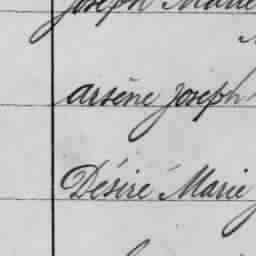 Joseph Marie
arsène Joseph
Désiré Marie